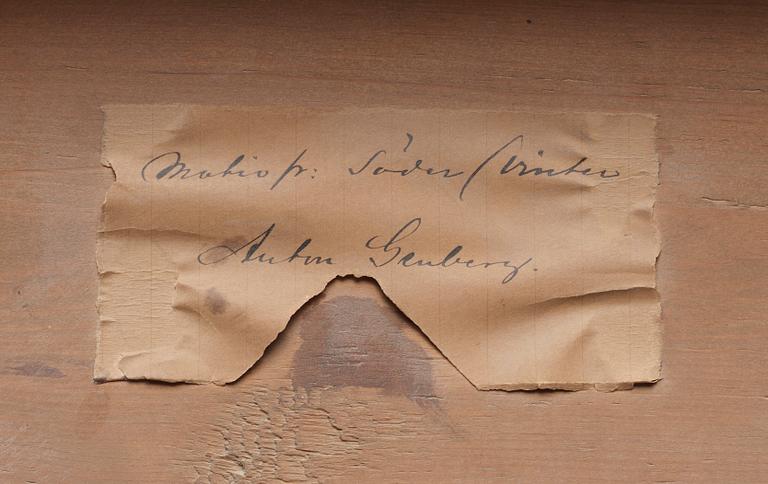 Motiv fr: Söder (Vinter
Anton Genberg.